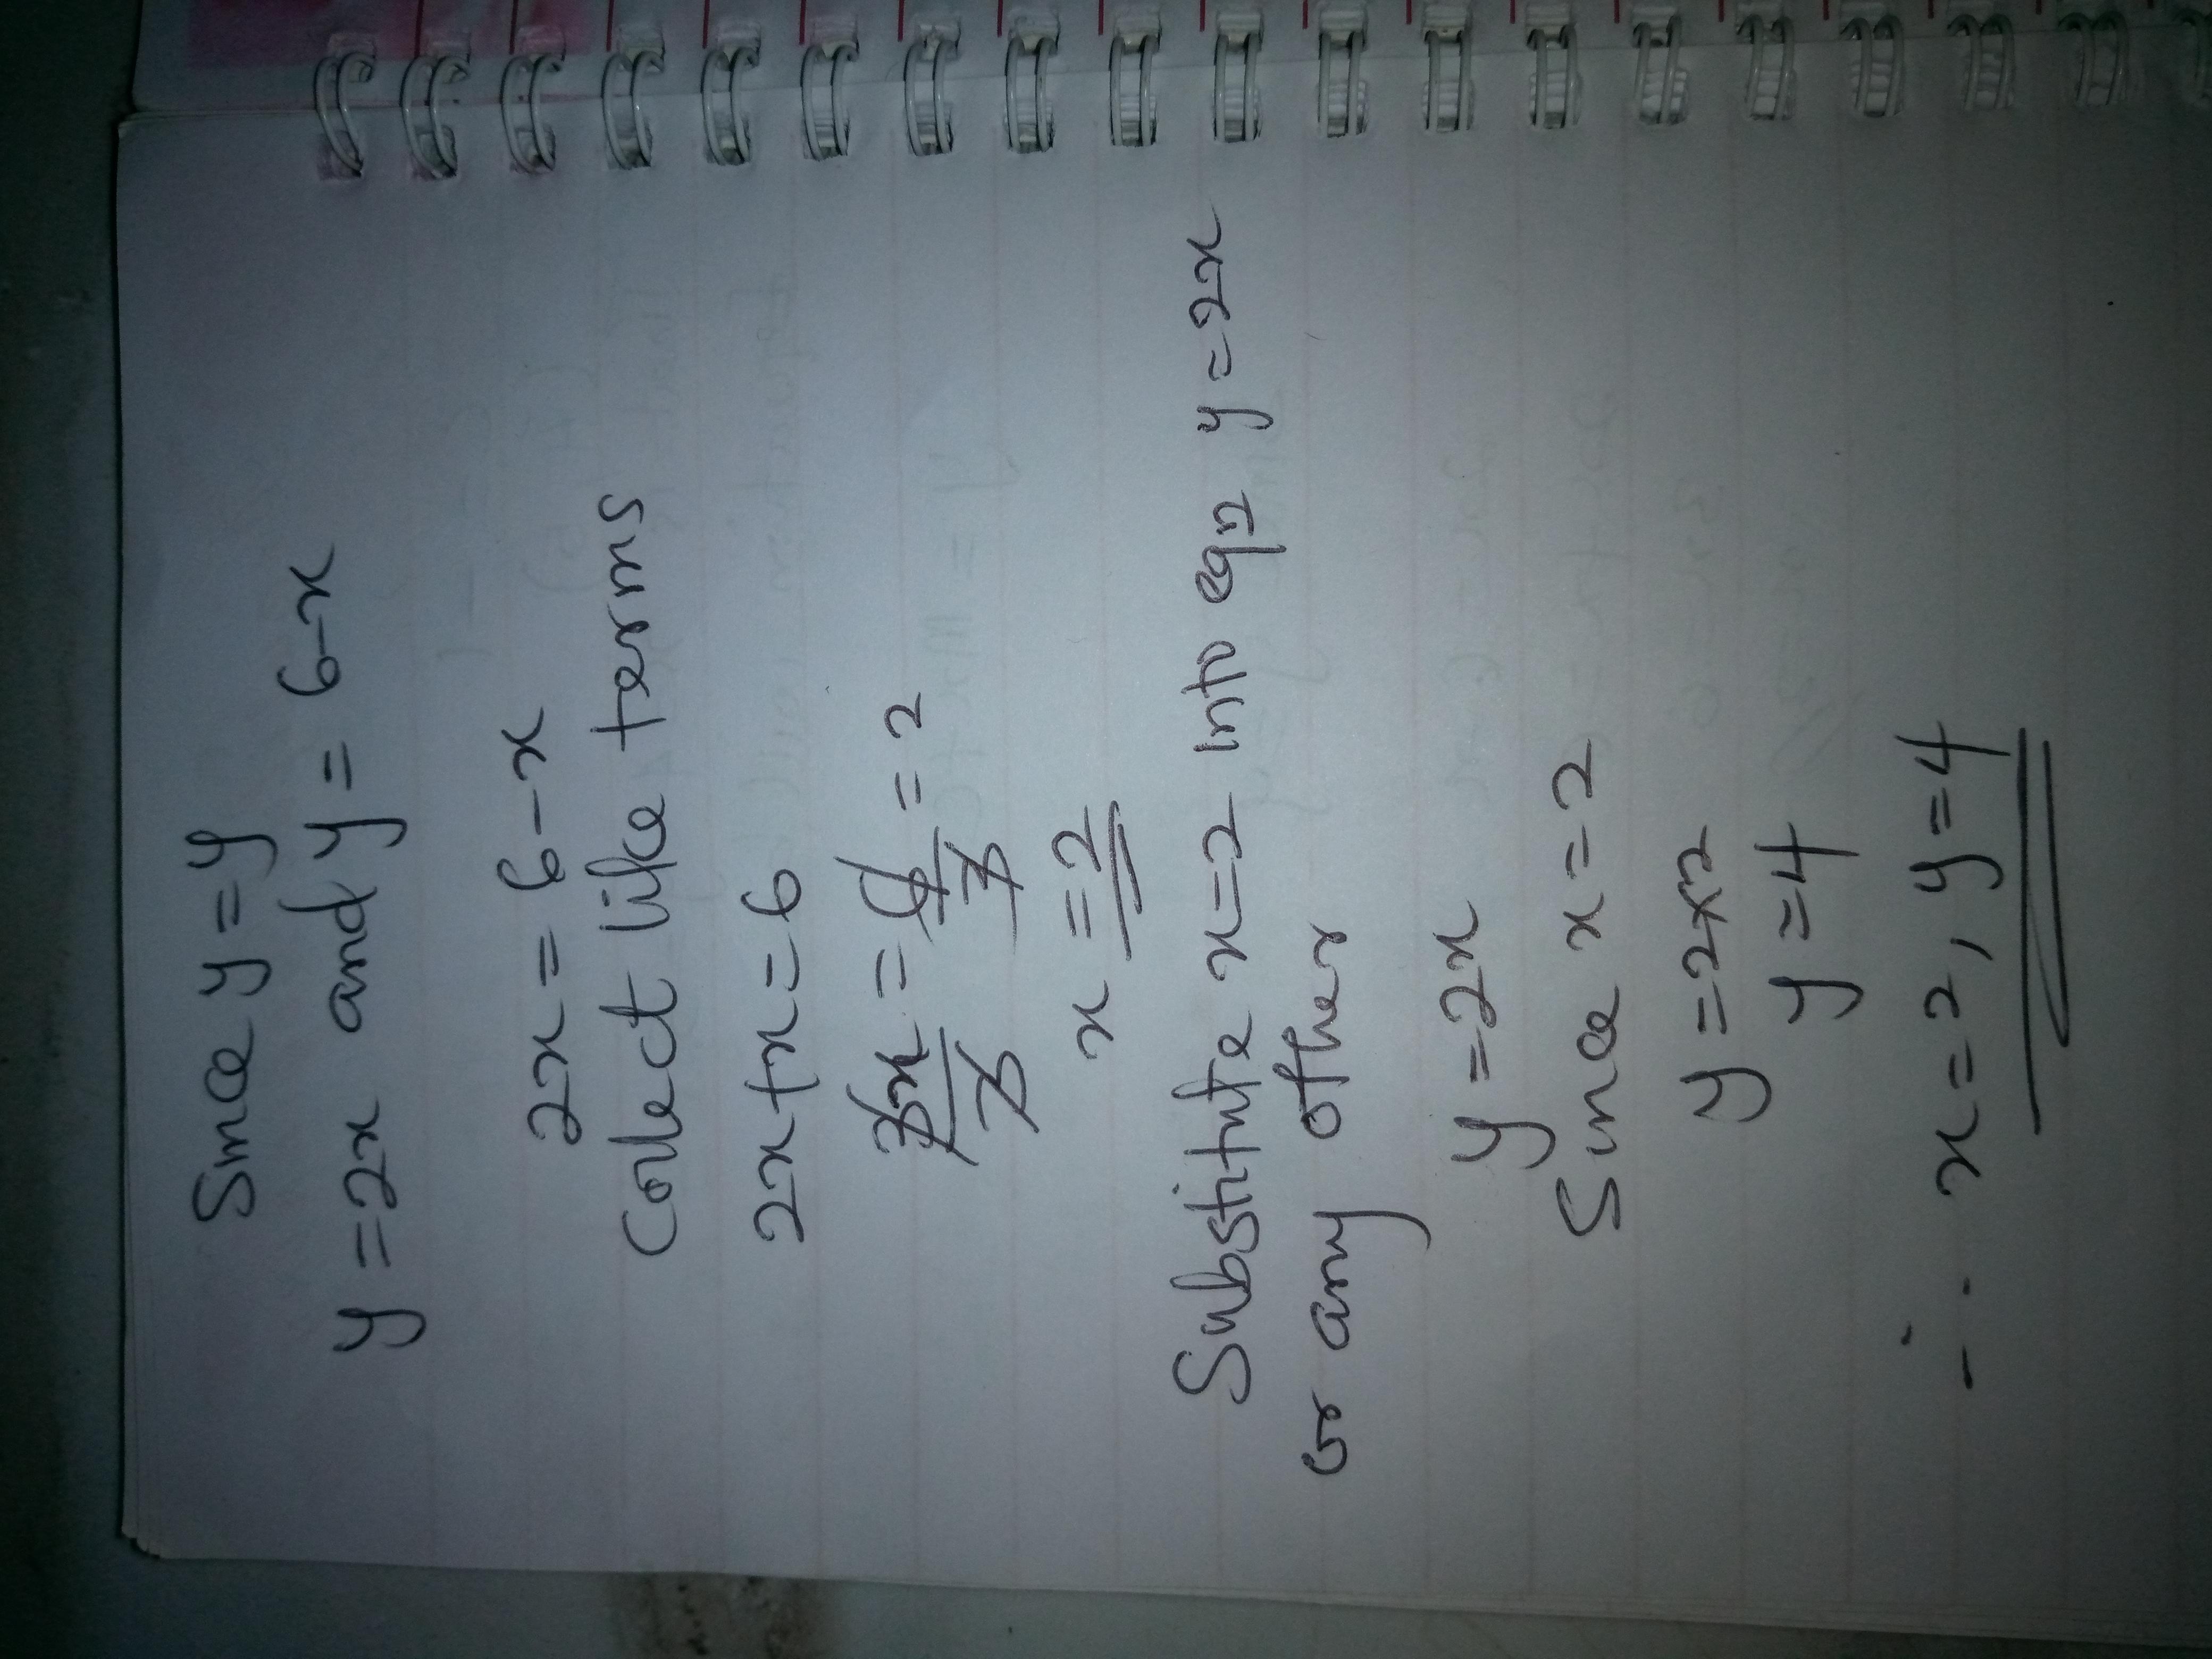 Since y = y
y = 2x and y = 6-x
2x = 6-x
Collect like terms
2x+x=6
3x/3 = 6/3 = 2
x = 2
Substitute x=2 into eq2 y=2x
or any other
y = 2x
Since x = 2
y = 2x2
y = 4
∴ x=2, y=4